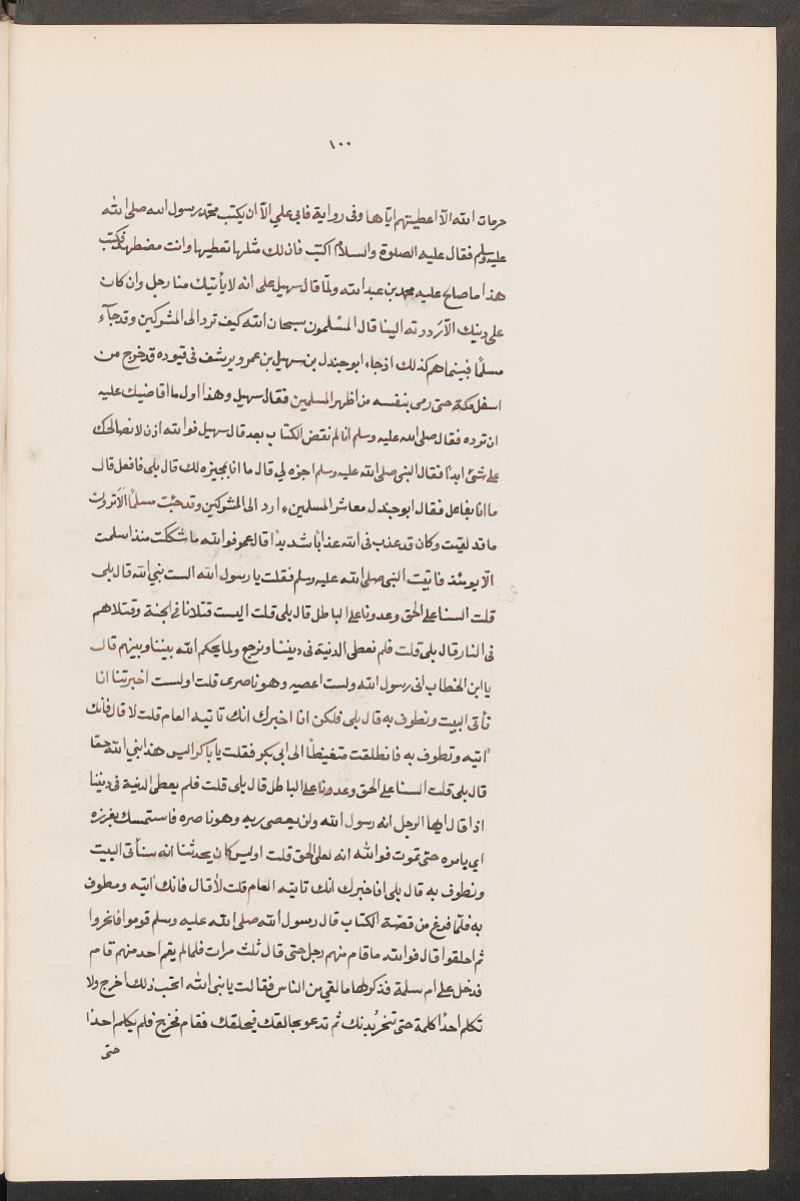 ١٠٠
حرمات الله الا اعطيتهم اياها وفى رواية فابى علي الا ان يكتب محمد رسول الله صلى الله
عليه وسلم فقال عليه الصلوة والسلام اكتب فان لك مثلها تعطيها وانت مضطهد فكتب
هذا ما صالح عليه محمد بن عبد الله ولما قال سهيل على انه لا يأتيك منا رجل وان كان
على دينك الا رددته الينا قال المسلمون سبحان الله كيف ترد الى المشركين وقد جآء
مسلمًا فبينما هم كذلك اذ جاء ابو جندل بن سهيل بن عمرو يرشف فى قيوده قد خرج من
اسفل مكة حتى رمى بنفسه من اظهر المسلمين فقال سهيل وهذا اول ما اقاضيك عليه
ان ترده فقال صلى الله عليه وسلم انا لم نقض الكتاب بعد قال سهيل فوالله اذن لا نصالحك
على شئ ابدًا فقال النبى صلى الله عليه وسلم اجزه لي قال ما انا بمجيزه لك قال بلى فافعل قال
ما انا بفاعل فقال ابو جندل معاشر المسلمين ءارد الى المشركين وقد جئت مسلمًا الا ترون
ما قد لقيت وكان قد عذب فى الله عذابًا شديدًا قال عمر فوالله ما شككت منذ اسلمت
الا يومئذ فاتيت النبى صلى الله عليه وسلم فقلت يا رسول الله الست نبي الله قال بلى
قلت السنا على الحق وعدونا على الباطل قال بلى قلت اليست قتلانا فى الجنة وقتلاهم
فى النار قال بلى قلت فلم نعطى الدنية فى ديننا ونرجع ولما يحكم الله بيننا وبينهم قال
يا ابن الخطاب انى رسول الله ولست اعصيه وهو ناصرى قلت اولست اخبرتنا انا
نأتى البيت ونطوف به قال بلى فلكن انا اخبرك انك تاتيه العام قلت لا قال فانك
اتيه وتطوف به فانطلقت متغيظًا الى ابى بكر فقلت يا با بكر اليس هذا نبي الله حقا
قال بلى قلت السنا على الحق وعدونا على الباطل قال بلى قلت فلم يعطى الدنية فى ديننا
اذا قال ايها الرجل انه رسول الله ولن يعصى ربه وهو ناصره فاستمسك بغرزه
اي بامره حتى تموت فوالله انه لعلى الحق قلت اوليس كان يحدثنا انه سنأتى البيت
ونطوف به قال بلى افاخبرك انك تاتيه العام قلت لا قال فانك اتيه ومطوف
به فلما فرغ من قضة الكتاب قال رسول الله صلى الله عليه وسلم قوموا فانحروا
ثم احلقوا قال فوالله ما قام منهم رجل حتى قال ثلث مرات فلما لم يقم احد منهم قام
فدخل على ام سلمة فذكر لها ما لقي من الناس فقالت يا نبى الله اتحب ذلك اخرج ولا
تكلم احدًا كلمة حتى تنحر بدنك ثم تدعو بحالقك فيحلقك فقام فخرج فلم يكلم احدًا
حتى